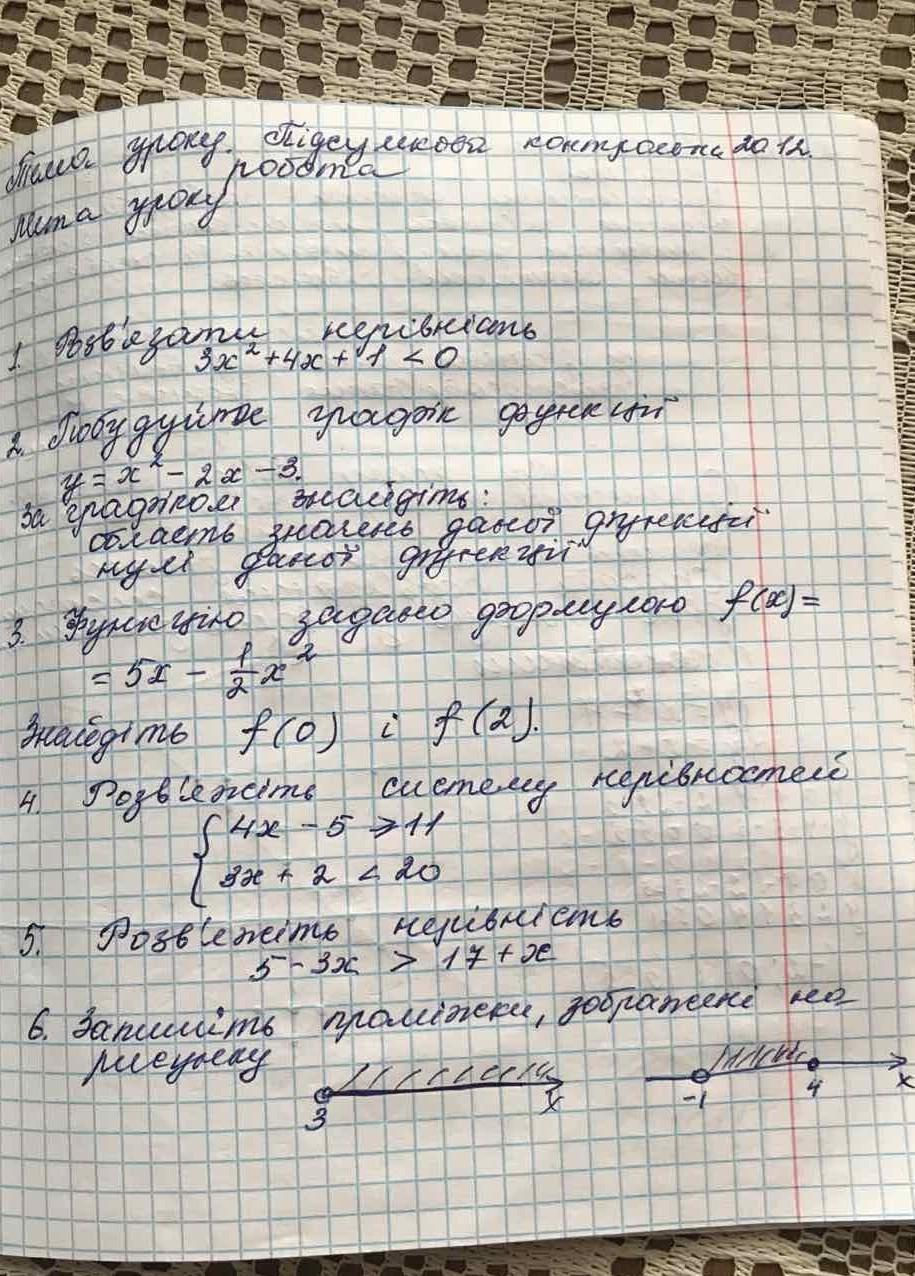 Тема уроку. Підсумкова контрольна 20.12.
робота
Мета уроку
1. Розв'язати нерівність
3x² + 4x + 1 < 0
2. Побудуйте графік функції
y = x² - 2x - 3.
За графіком знайдіть:
область значень даної функції
нулі даної функції
3. Функцію задано формулою f(x) =
= 5x - 1/2 x²
Знайдіть f(0) і f(2).
4. Розв'яжіть систему нерівностей
{ 4x - 5 ≥ 11
3x + 2 < 20
5. Розв'яжіть нерівність
5 - 3x > 17 + x
6. Запишіть проміжки, зображені на
рисунку
3 x -1 4 x